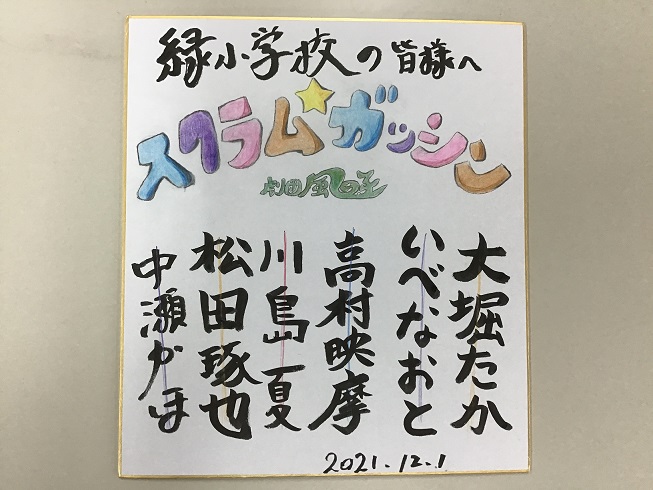 緑小学校の皆様へ
スクラム☆ガッシン
劇団風の子
大堀たか
いべなおと
高村映摩
川島夏
松田琢也
中瀬かほ
2021.12.1